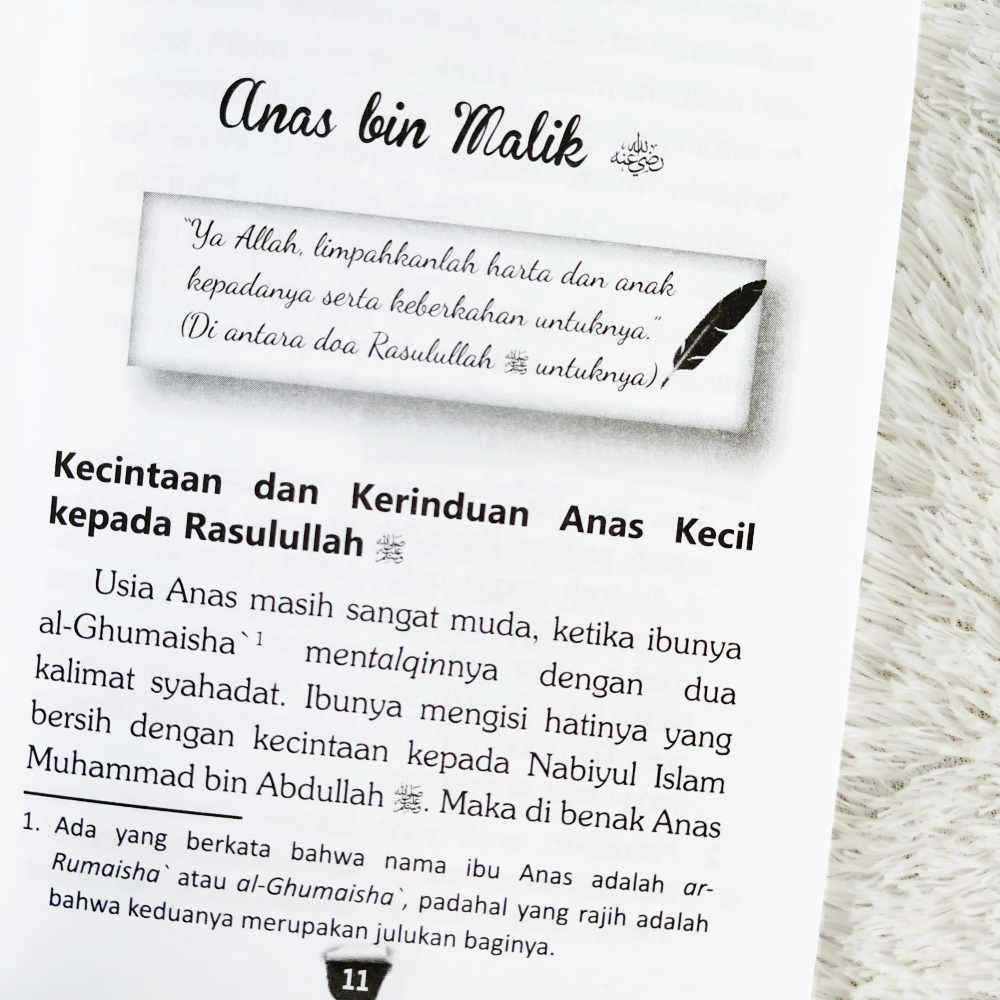 Anas bin Malik رضي الله عنه
“Ya Allah, limpahkanlah harta dan anak
kepadanya serta keberkahan untuknya.”
(Di antara doa Rasulullah ﷺ untuknya)
Kecintaan dan Kerinduan Anas Kecil
kepada Rasulullah ﷺ
Usia Anas masih sangat muda, ketika ibunya
al-Ghumaisha`1 mentalqinnya dengan dua
kalimat syahadat. Ibunya mengisi hatinya yang
bersih dengan kecintaan kepada Nabiyul Islam
Muhammad bin Abdullah ﷺ. Maka di benak Anas
1. Ada yang berkata bahwa nama ibu Anas adalah ar-
Rumaisha` atau al-Ghumaisha`, padahal yang rajih adalah
bahwa keduanya merupakan julukan baginya.
11